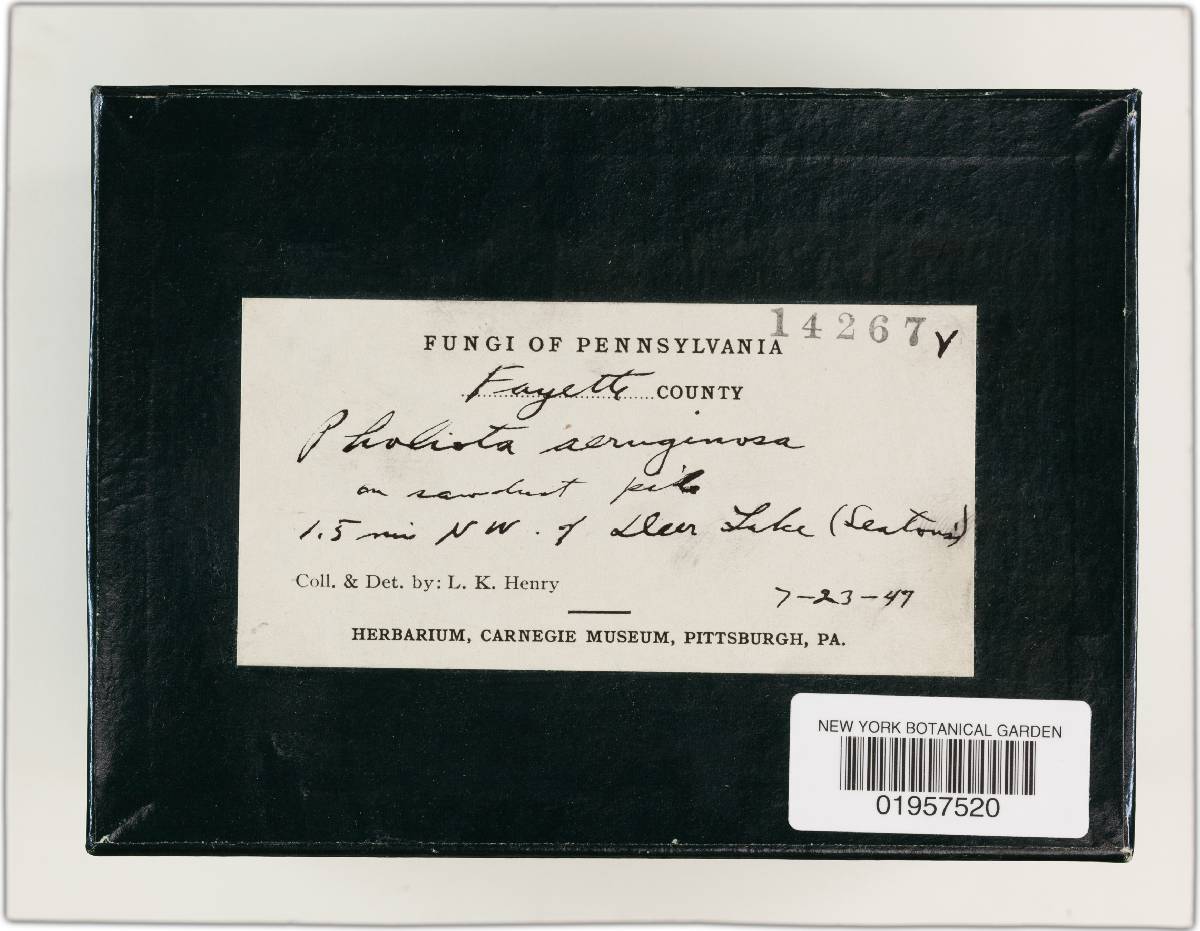 14267 v
FUNGI OF PENNSYLVANIA
Fayette COUNTY
Pholiota aeruginosa
on sawdust pile
1.5 mi NW. of Deer Lake (Seaton's)
Coll. & Det. by: L. K. Henry
7-23-47
HERBARIUM, CARNEGIE MUSEUM, PITTSBURGH, PA.
NEW YORK BOTANICAL GARDEN
01957520